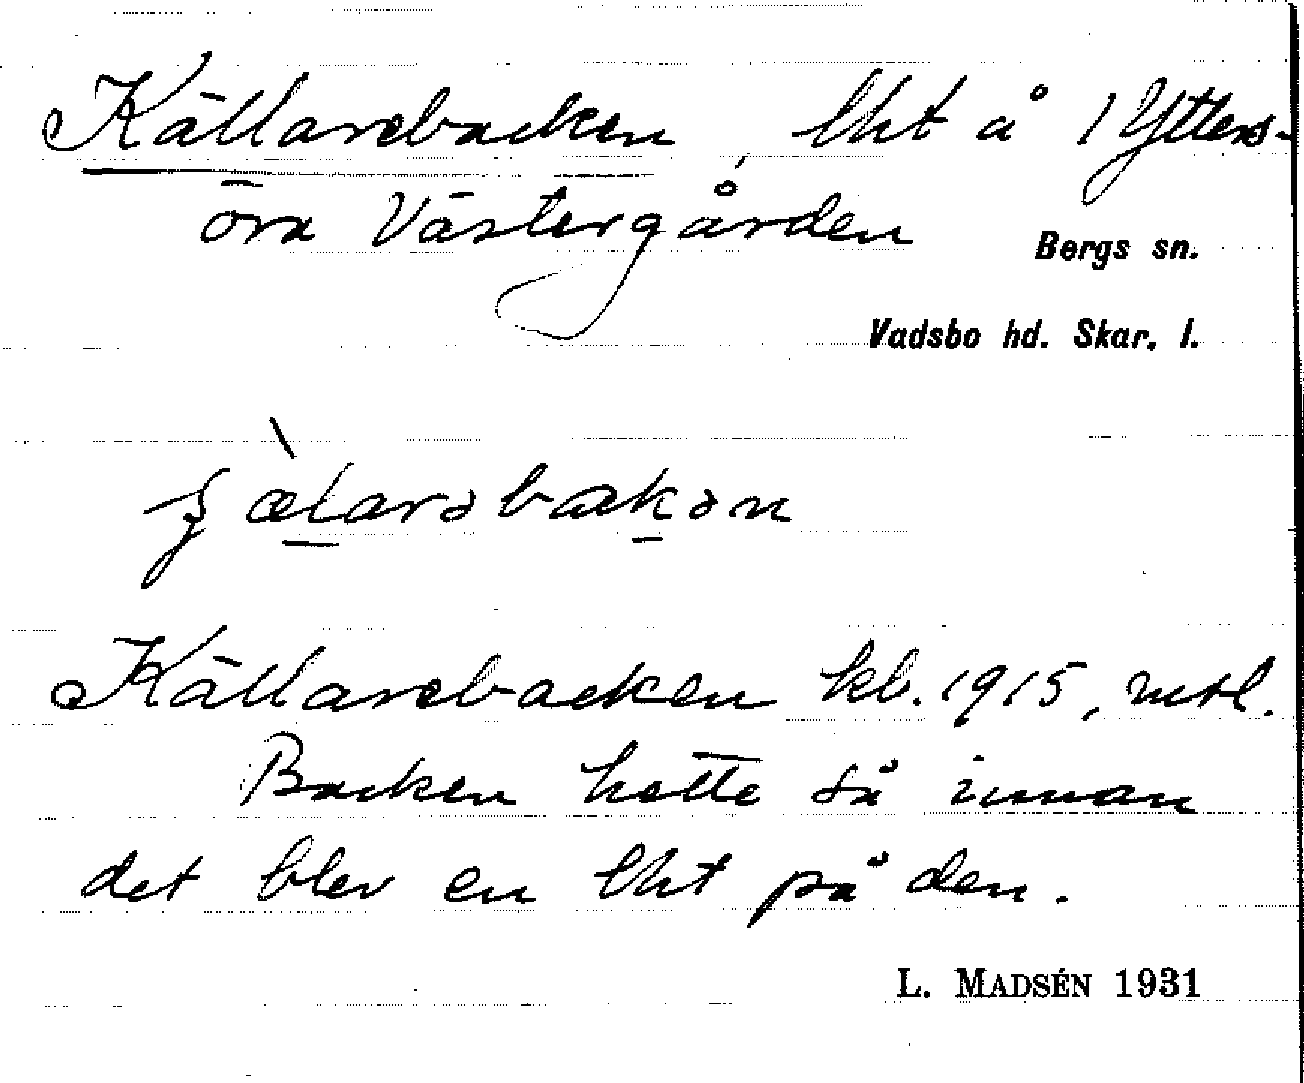 Källarebacken, lht å 1 Ytters-
öra Västergården
Bergs sn.
Vadsbo hd. Skar. l.
Källarebacken kb. 1915, mtl.
Backen hette så innan
det blev en lht på den.
L. MADSÉN 1931